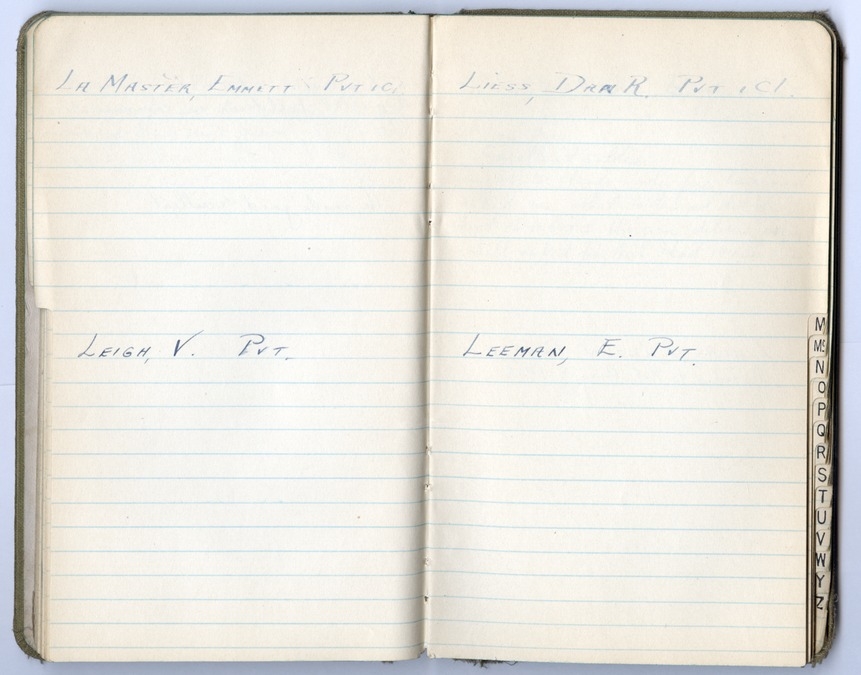 La Master, Emmett Pvt 1 Cl.
Leigh, V. Pvt.
Liess, Dan R. Pvt 1 Cl.
Leeman, E. Pvt.
M
Mc
N
O
P
Q
R
S
T
U
V
W
Y
Z